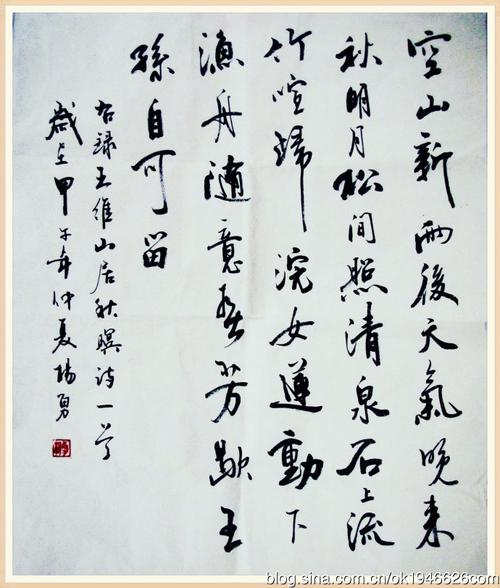 空山新雨後天氣晚来
秋明月松間照清泉石上流
竹喧歸浣女蓮動下
漁舟隨意春芳歇王
孫自可留
右録王維山居秋暝诗一首
歲在甲午年仲夏楊勇
blog.sina.com.cn/ok1946626com